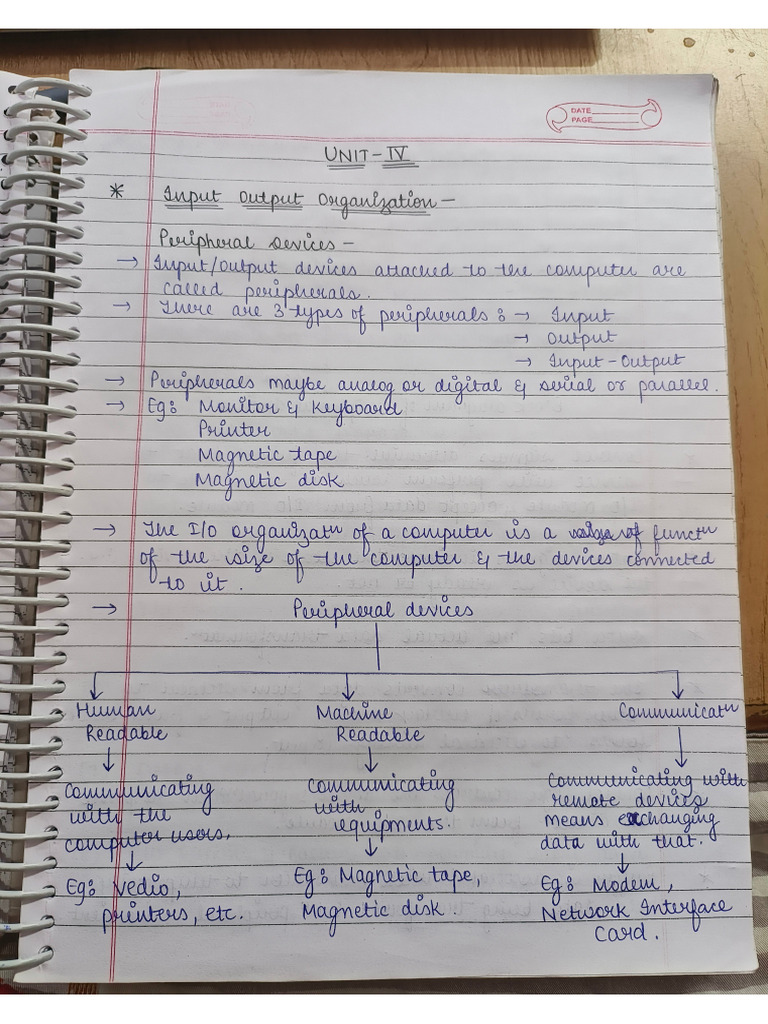 DATE
PAGE
UNIT-IV
* Input Output Organization -
Peripheral Devices -
→ Input/Output devices attached to the computer are
called peripherals.
→ There are 3 types of peripherals : → Input
→ Output
→ Input-Output
→ Peripherals maybe analog or digital & serial or parallel.
→ Eg: Monitor & Keyboard
Printer
Magnetic tape
Magnetic disk
→ The I/O organizatn of a computer is a functn
of the size of the computer & the devices connected
to it.
→ Peripheral devices
Human Machine Communicatn
Readable Readable
Communicating Communicating Communicating with
with the with remote devices
computer users, equipments. means exchanging
data with that.
Eg: Vedio, Eg: Magnetic tape, Eg: Modem,
printers, etc. Magnetic disk. Network Interface
Card.